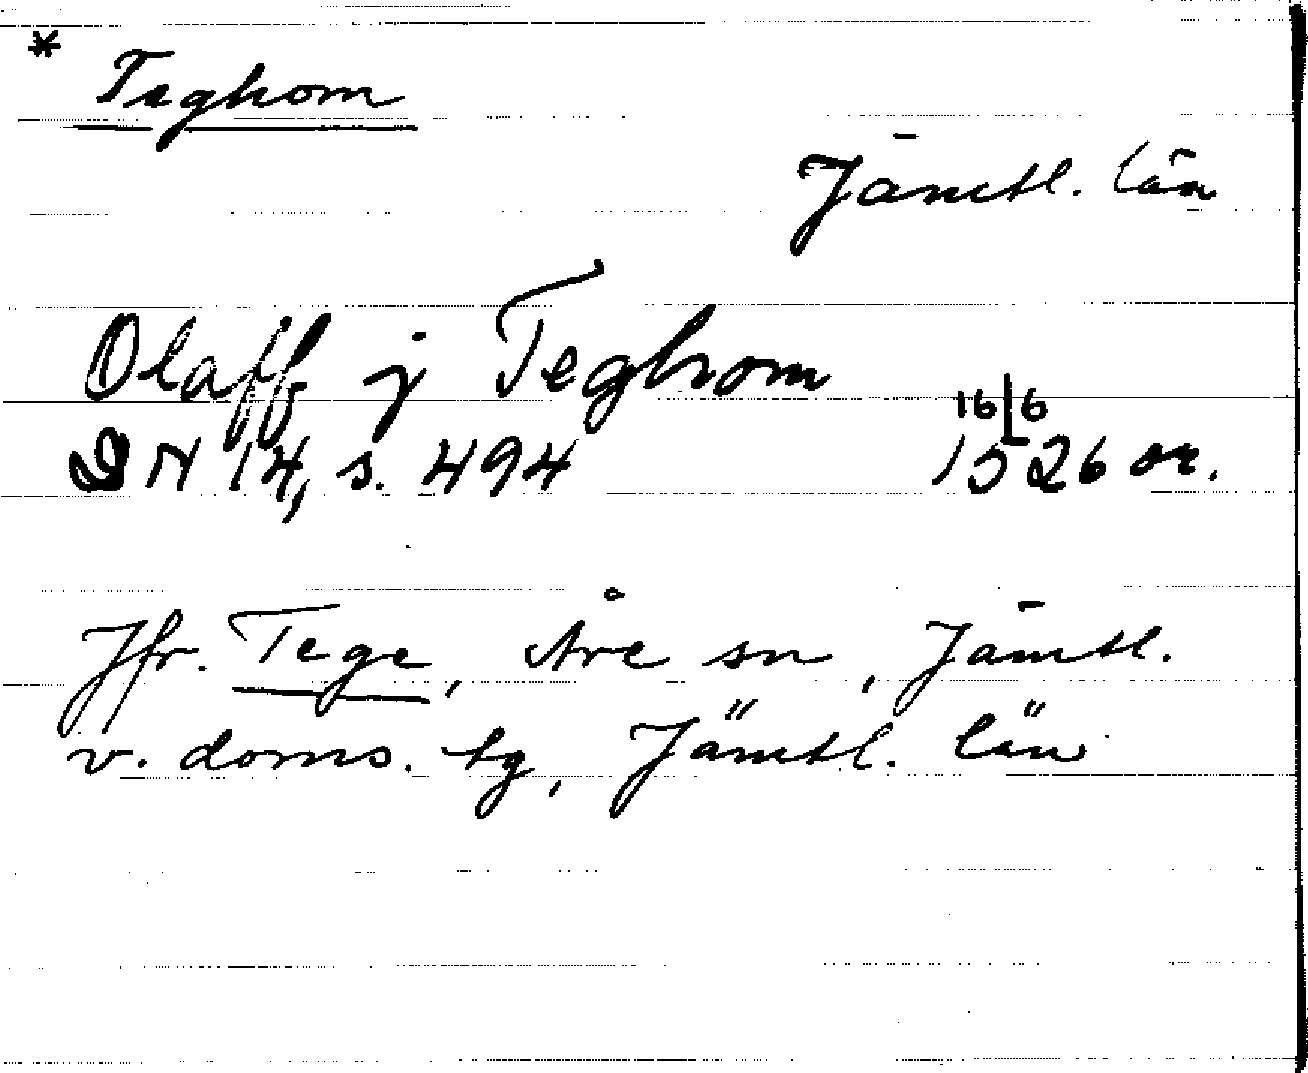 * Teghom
Jämtl. län
Olaff j Teghom
16/6
DN 14, s. 494 1526 or.
Jfr. Tege, Åre sn, Jämtl.
v. doms. tg, Jämtl. län